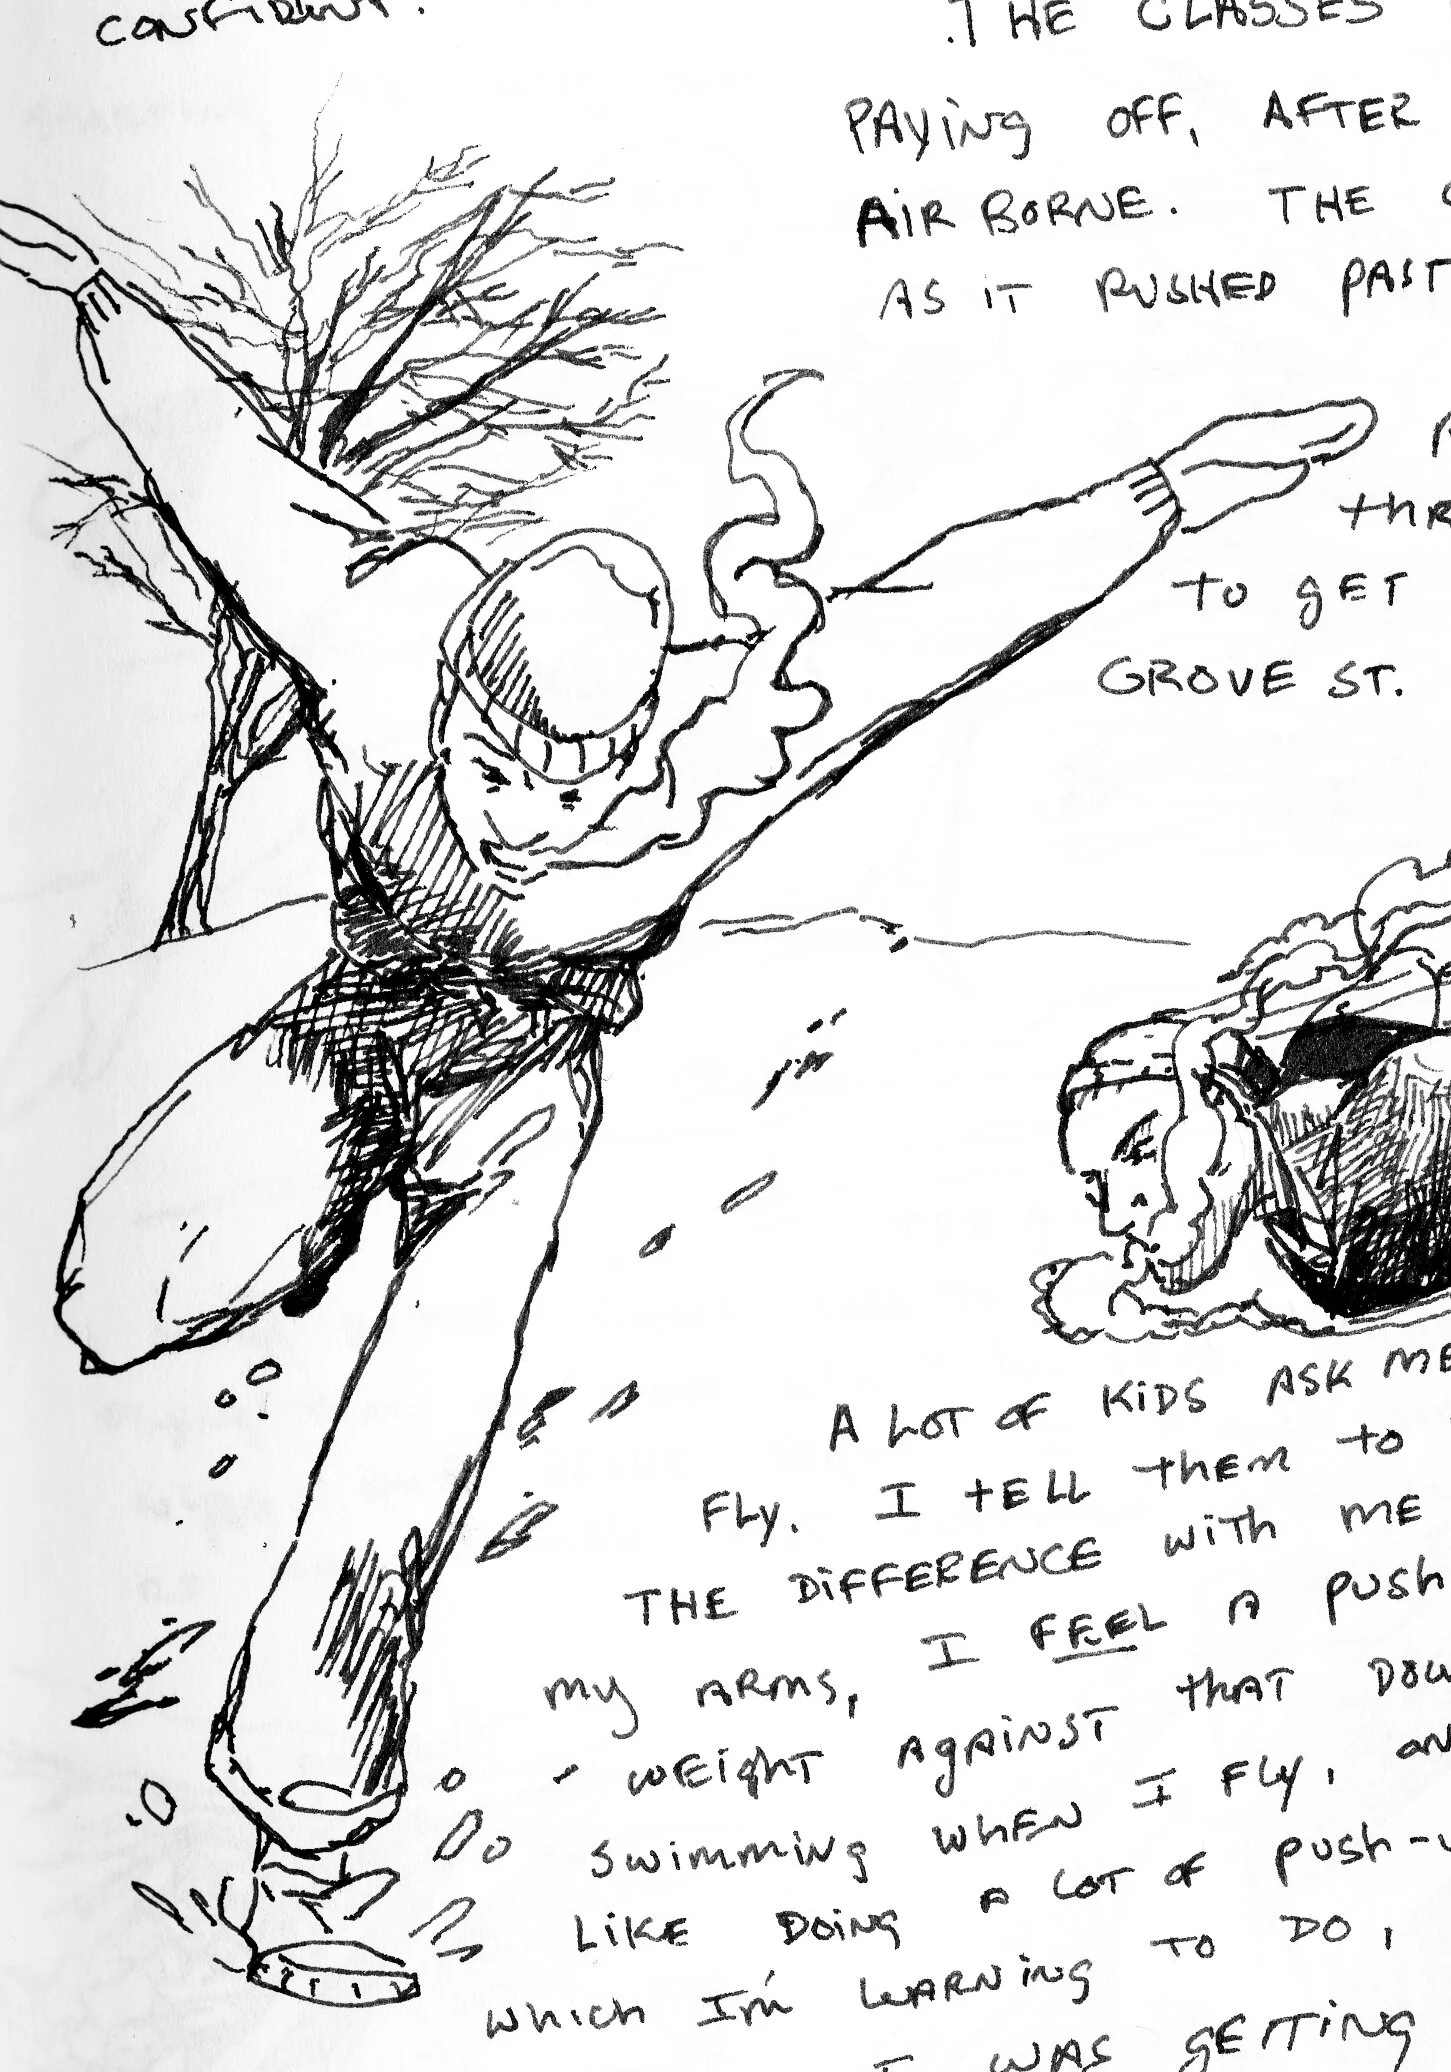 CONFIDENT.
THE CLASSES
PAYING OFF, AFTER
AIR BORNE. THE
AS IT RUSHED PAST
thR
to gET
GROVE ST.
A LOT OF KiDS ASK ME
FLy. I tELL thEm to
THE DiFFERENCE with ME
my ARms, I FEEL A PUSh
- WEight AgAiNST thAT DOW
SwimmiNg whEN I FLy, an
LiKE DOiNg A LOT OF PUSh-u
which I'm LEARNiNg TO DO,
I WAS gETTiNg